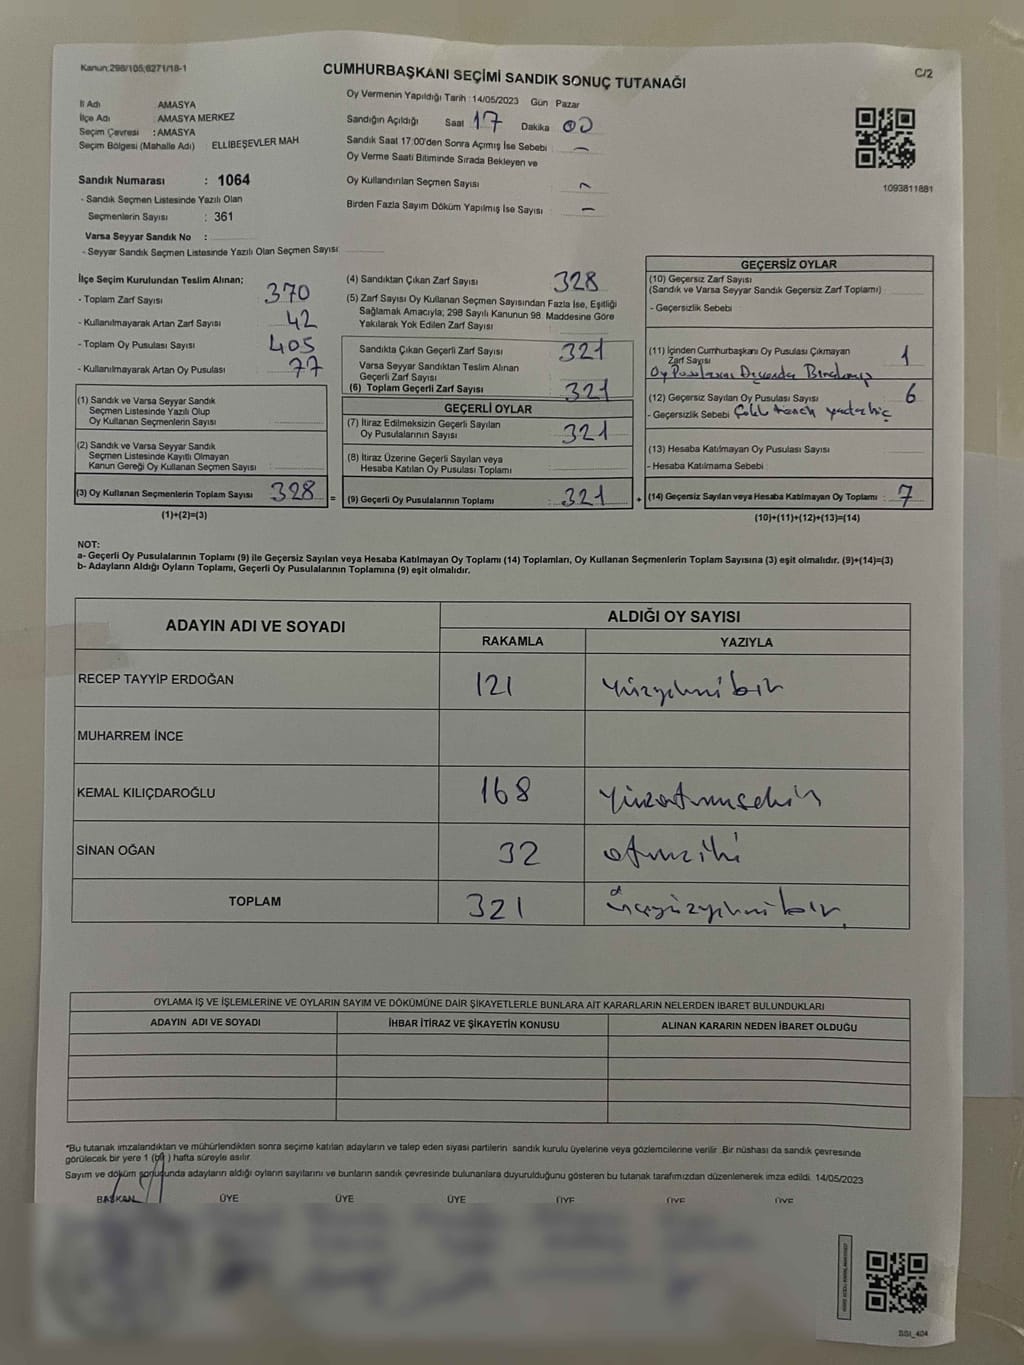 Kanun:298/105;6271/18-1
CUMHURBAŞKANI SEÇİMİ SANDIK SONUÇ TUTANAĞI
C/2
İl Adı AMASYA
İlçe Adı AMASYA MERKEZ
Seçim Çevresi : AMASYA
Seçim Bölgesi (Mahalle Adı) ELLİBEŞEVLER MAH
Oy Vermenin Yapıldığı Tarih : 14/05/2023 Gün Pazar
Sandığın Açıldığı Saat 17 Dakika 00
Sandık Saat 17:00'den Sonra Açımış İse Sebebi : —
Oy Verme Saati Bitiminde Sırada Bekleyen ve
Oy Kullandırılan Seçmen Sayısı
Birden Fazla Sayım Döküm Yapılmış İse Sayısı : —
1093811881
Sandık Numarası : 1064
- Sandık Seçmen Listesinde Yazılı Olan
Seçmenlerin Sayısı : 361
Varsa Seyyar Sandık No :
- Seyyar Sandık Seçmen Listesinde Yazılı Olan Seçmen Sayısı:
İlçe Seçim Kurulundan Teslim Alınan;
- Toplam Zarf Sayısı 370
- Kullanılmayarak Artan Zarf Sayısı 42
- Toplam Oy Pusulası Sayısı 405
- Kullanılmayarak Artan Oy Pusulası 77
(1) Sandık ve Varsa Seyyar Sandık
Seçmen Listesinde Yazılı Olup
Oy Kullanan Seçmenlerin Sayısı :
(2) Sandık ve Varsa Seyyar Sandık
Seçmen Listesinde Kayıtlı Olmayan
Kanun Gereği Oy Kullanan Seçmen Sayısı :
(3) Oy Kullanan Seçmenlerin Toplam Sayısı 328 =
(1)+(2)=(3)
(4) Sandıktan Çıkan Zarf Sayısı 328
(5) Zarf Sayısı Oy Kullanan Seçmen Sayısından Fazla İse, Eşitliği
Sağlamak Amacıyla; 298 Sayılı Kanunun 98. Maddesine Göre
Yakılarak Yok Edilen Zarf Sayısı
Sandıkta Çıkan Geçerli Zarf Sayısı 321
Varsa Seyyar Sandıktan Teslim Alınan
Geçerli Zarf Sayısı
(6) Toplam Geçerli Zarf Sayısı 321
GEÇERLİ OYLAR
(7) İtiraz Edilmeksizin Geçerli Sayılan
Oy Pusulalarının Sayısı 321
(8) İtiraz Üzerine Geçerli Sayılan veya
Hesaba Katılan Oy Pusulası Toplamı
(9) Geçerli Oy Pusulalarının Toplamı : 321 +
GEÇERSİZ OYLAR
(10) Geçersiz Zarf Sayısı
(Sandık ve Varsa Seyyar Sandık Geçersiz Zarf Toplamı)
- Geçersizlik Sebebi
(11) İçinden Cumhurbaşkanı Oy Pusulası Çıkmayan
Zarf Sayısı 1
Oy Pusulasını
(12) Geçersiz Sayılan Oy Pusulası Sayısı : 6
- Geçersizlik Sebebi
(13) Hesaba Katılmayan Oy Pusulası Sayısı
- Hesaba Katılmama Sebebi
(14) Geçersiz Sayılan veya Hesaba Katılmayan Oy Toplamı : 7
(10)+(11)+(12)+(13)=(14)
NOT:
a- Geçerli Oy Pusulalarının Toplamı (9) ile Geçersiz Sayılan veya Hesaba Katılmayan Oy Toplamı (14) Toplamları, Oy Kullanan Seçmenlerin Toplam Sayısına (3) eşit olmalıdır. (9)+(14)=(3)
b- Adayların Aldığı Oyların Toplamı, Geçerli Oy Pusulalarının Toplamına (9) eşit olmalıdır.
ADAYIN ADI VE SOYADI
ALDIĞI OY SAYISI
RAKAMLA YAZIYLA
RECEP TAYYİP ERDOĞAN 121 yüzyirmibir
MUHARREM İNCE
KEMAL KILIÇDAROĞLU 168 yüzatmışsekiz
SİNAN OĞAN 32 otuziki
TOPLAM 321 üçyüzyirmibir
OYLAMA İŞ VE İŞLEMLERİNE VE OYLARIN SAYIM VE DÖKÜMÜNE DAİR ŞİKAYETLERLE BUNLARA AİT KARARLARIN NELERDEN İBARET BULUNDUKLARI
ADAYIN ADI VE SOYADI İHBAR İTİRAZ VE ŞİKAYETİN KONUSU ALINAN KARARIN NEDEN İBARET OLDUĞU
*Bu tutanak imzalandıktan ve mühürlendikten sonra seçime katılan adayların ve talep eden siyasi partilerin sandık kurulu üyelerine veya gözlemcilerine verilir. Bir nüshası da sandık çevresinde
görülecek bir yere 1 (bir) hafta süreyle asılır.
Sayım ve döküm sonucunda adayların aldığı oyların sayılarını ve bunların sandık çevresinde bulunanlara duyurulduğunu gösteren bu tutanak tarafımızdan düzenlenerek imza edildi. 14/05/2023
BAŞKAN ÜYE ÜYE ÜYE ÜYE ÜYE ÜYE
SSI_404